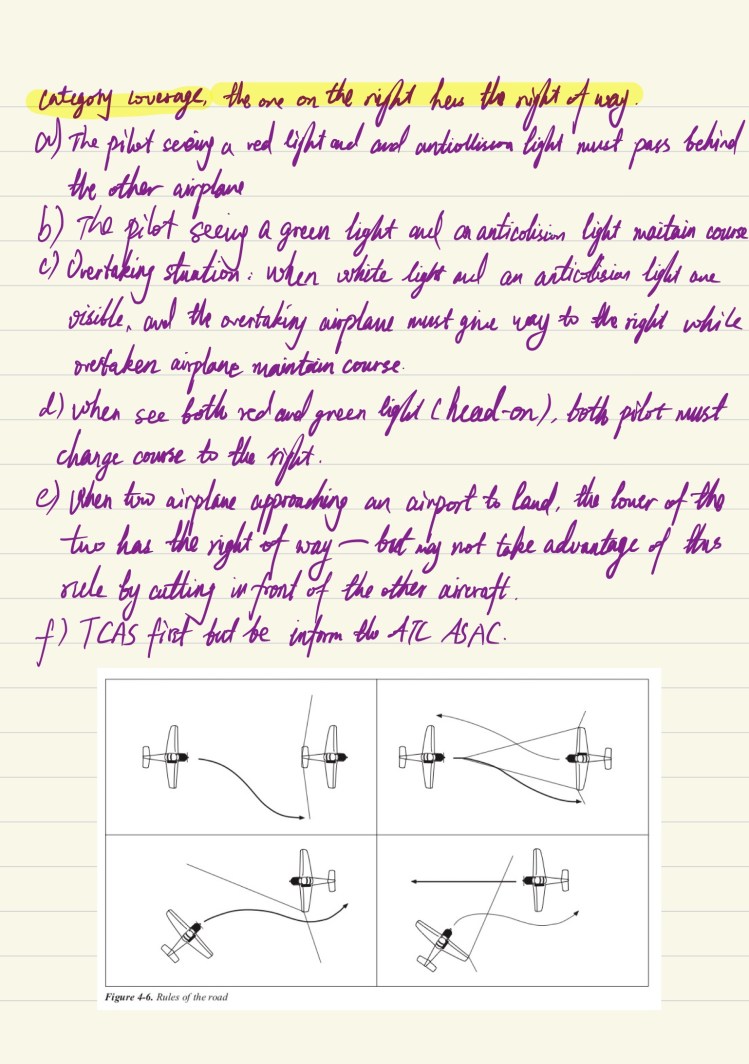 category coverage, the one on the right hess the right of way.
a) The pilot seeing a red light and and anticollision light must pass behind
the other airplane
b) The pilot seeing a green light and an anticolision light maitain course
c) Overtaking situation: when white light and an anticolision light are
visible, and the overtaking airplane must give way to the right while
overtaken airplane maintain course.
d) when see both red and green light (head-on), both pilot must
change course to the right.
e) When two airplane approaching an airport to land, the lower of the
two has the right of way — but may not take advantage of this
rule by cutting in front of the other aircraft.
f) TCAS first but be inform the ATC ASAC.
Figure 4-6. Rules of the road